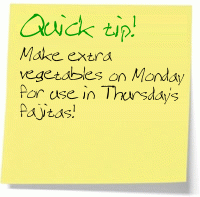 Quick tip!
Make extra
vegetables on Monday
for use in Thursday's
fajitas!